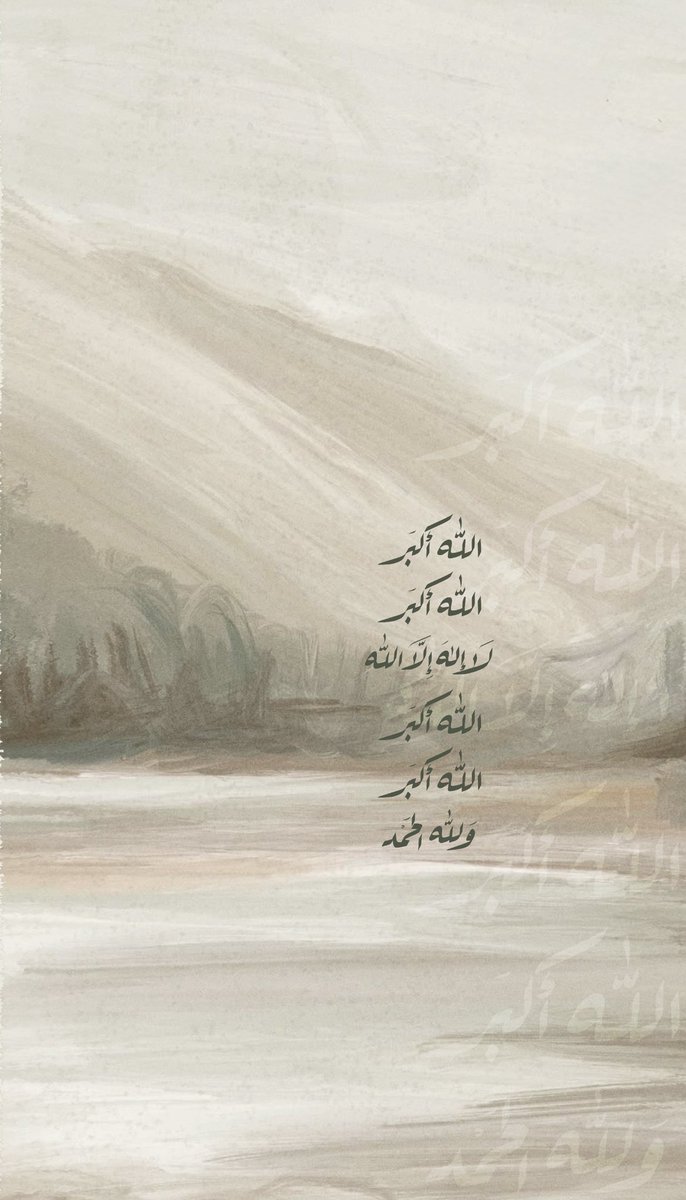 الله أكبَر
الله أكبَر
لَا إلهَ إِلَّا اللَّه
الله أكبَر
الله أكبَر
وَلله الحَمْد
الله أكبَر
الله أكبَر
لَا إلهَ إِلَّا اللَّه
الله أكبَر
الله أكبَر
وَلله الحَمْد